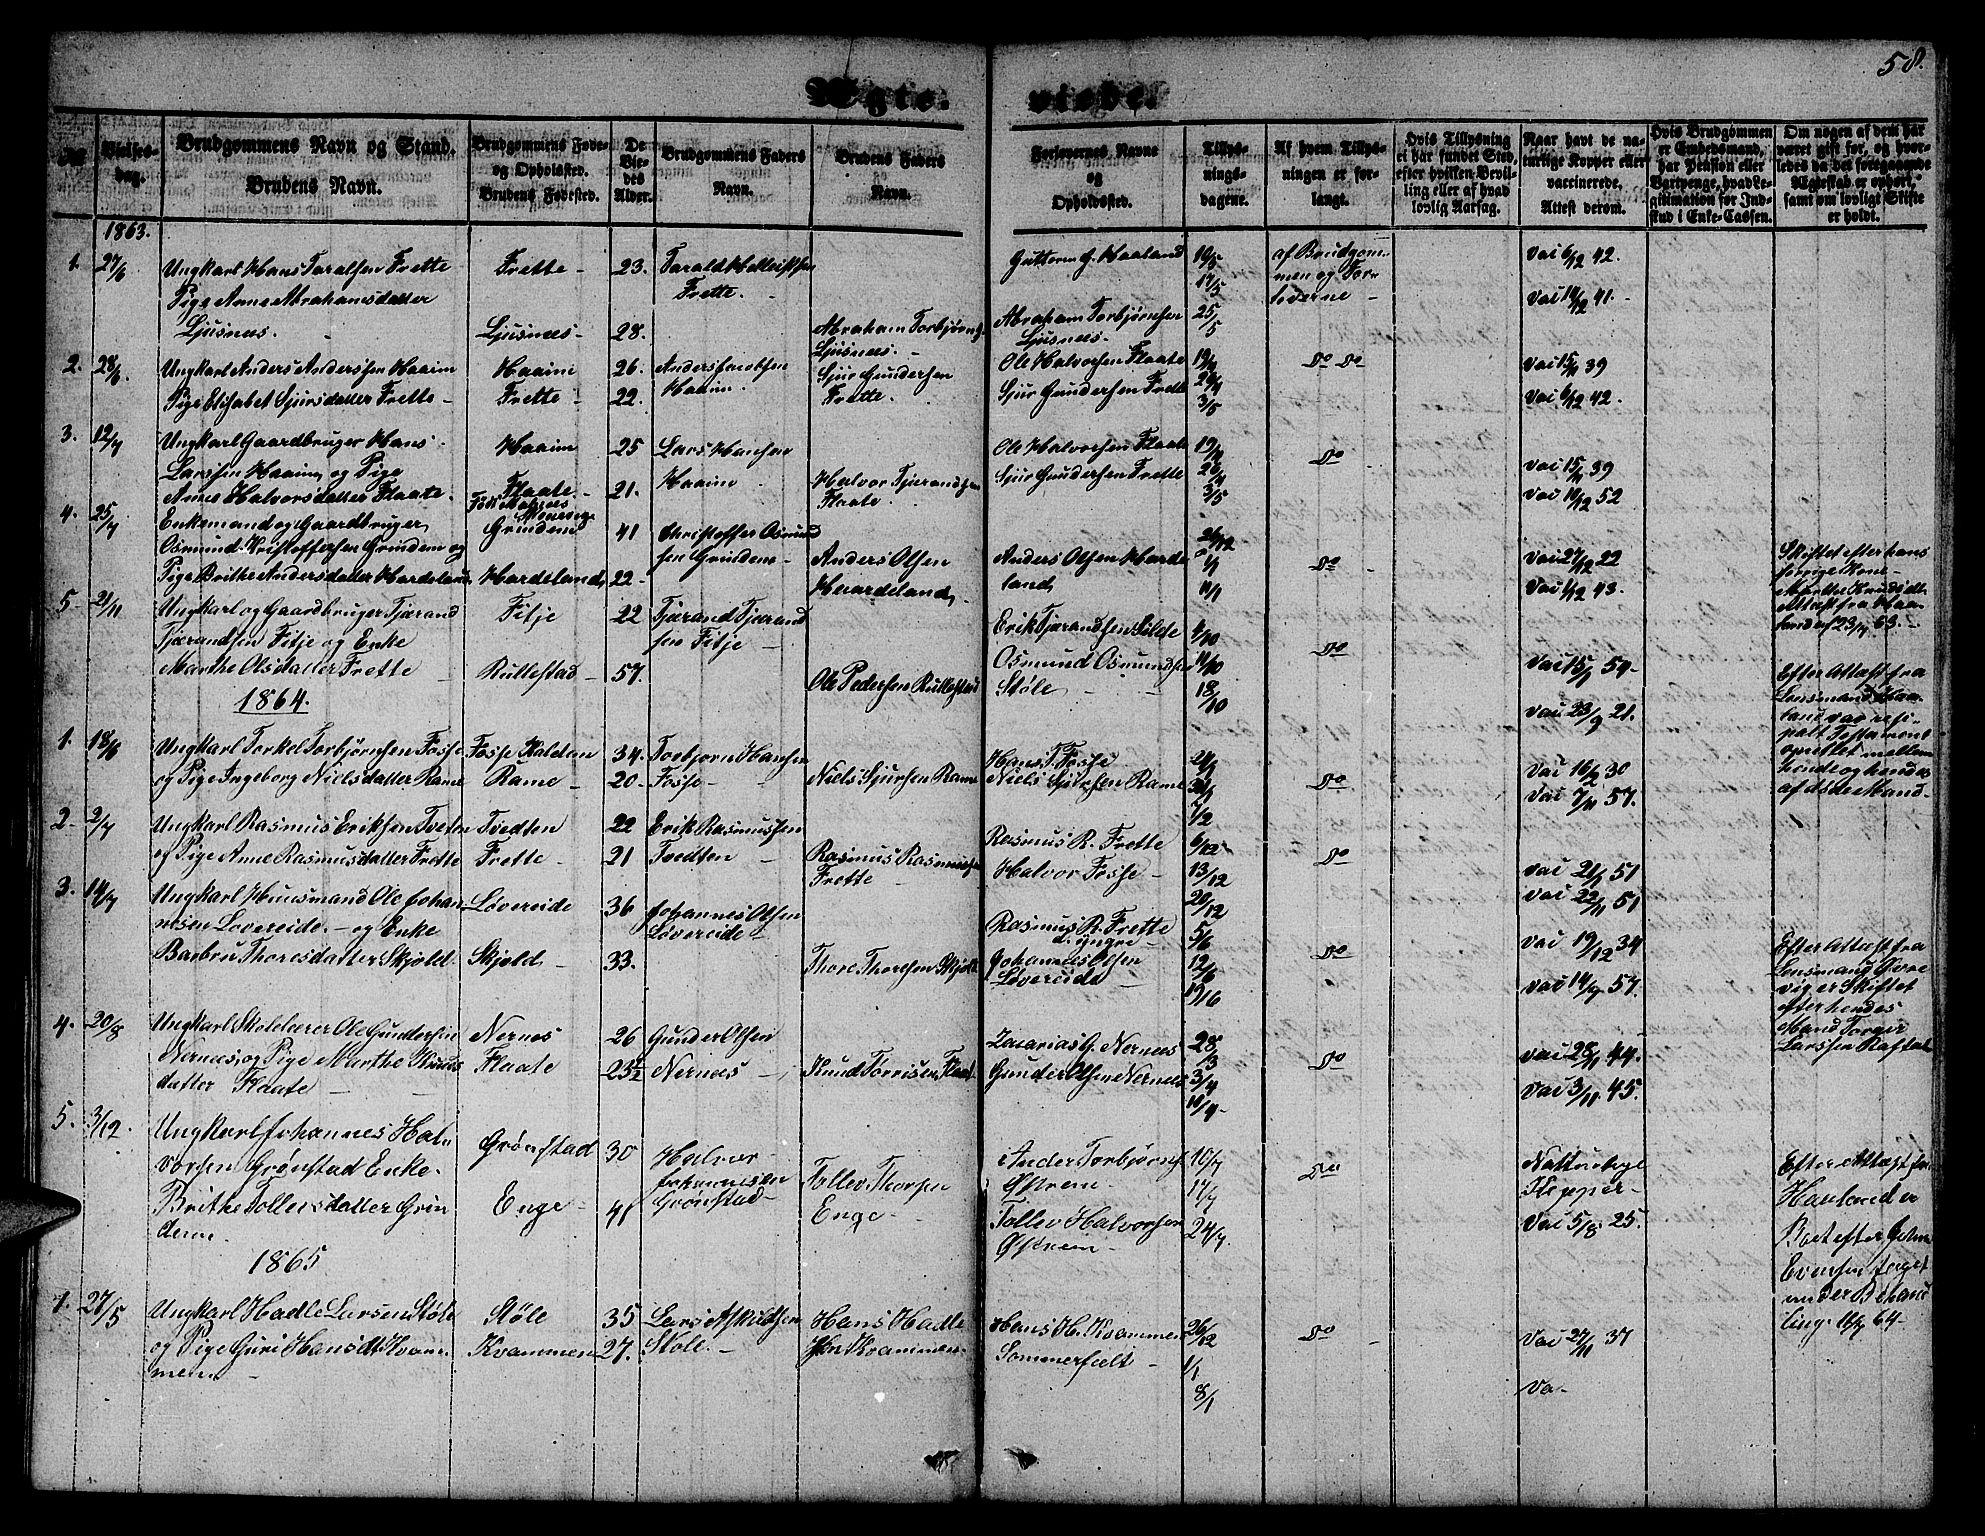 58.
Ægte- viede.
No
Vielses-
dag.
Brudgommens Navn og Stand.
Brudens Navn.
Brudgommens Føde-
og Opholdssted.
Brudens Fødested.
De
Vie-
des
Alder.
Brudgommens Faders
Navn.
Brudens Faders
Navn.
Forlovernes Navne
og
Opholdssted.
Tillys-
nings-
dagene.
Af hvem Tillys-
ningen er for-
langt.
Hvis Tillysning
ei har fundet Sted,
efter hvilken Bevil-
ling eller af hvad
lovlig Aarsag.
Naar havt de na-
turlige Kopper eller
vaccinerede.
Attest derom.
Hvis Brudgommen
er Embedsmand,
har Pension eller
Vartpenge, hvad Le-
gitimation for Ind-
skud i Enke-Cassen.
Om nogen af dem har
været gift før, og hvor-
ledes da det foregaaende
Ægteskab er ophørt,
samt om lovligt Skifte
er holdt.
1863.
1. 27/6 Ungkarl Hans Taralsen Frette Frette - 23. Tarald Helliksen Guttorm G. Haaland 10/5 af Brudgom- Vai 6/12 42.
Pige Anne Abrahamsdatter Frette. 17/5 men og For- Vai 14/12 41.
Ljusnes. Ljusnes - 28. Abraham Torbjørns. Abraham Torbjørnsen 25/5 loverne -
Ljusnes. - Ljusnes. -
2. 28/6 Ungkarl Anders Anderssen Haaim Haaim - 26. Anders Jacobsen Sjur Gundersen Ole Halvorsen Flaate 19/4 Do Do Vai 15/11 39
Pige Elisabet Sjursdatter Frette - Frette - 22. Haaim. - Frette. - Sjur Gundersen Frette 26/4 3/5 Vai 6/12 42.
3. 12/7 Ungkarl Gaardbruger Hans Haaim 25 Lars Hansen Ole Halvorsen Flaate 19/4 Do
Larssen Haaim og Pige Haaim - Halvor Tjerandsen Sjur Gundersen Frette 26/4 Vai 15/11 39
Anne Halvorsdatter Flaate. Flaate - 21. Flaate - 3/5 Vai 10/12 52
4. 25/7 Enkemand og Gaardbruger Grindem 41 Christoffer Osmund 26/12
Osmund Kristoffersen Grindem og sen Grindem - Anders Olsen Anders Olsen Harde 1/1 Do Vai 27/12 22 Skiftet efter hans
Pige Brithe Andersdatter Hardeland Hardeland, 22 - Haardeland, land, 11/1 Vai 1/12 43. forrige Kone
Marthe Knudsdtr.
Attest fra Haa-
land af 23/7 63. -
5. 21/11 Ungkarl og Gaardbruger Tjerand Fitje 22 Tjerand Tjerand Erik Tjerandsen Silde 4/10
Tjerandsen Fitje og Enke sen Fitje - Osmund Osmundsen 11/10 Do Vai 15/1 54 -
Marthe Olsdatter Frette Rullestad - 57. Ole Pedersen Rullestad Støle - 18/10 Vai 23/9 21. Efter Attest fra
Lensmand Haa-
land var resi-
oprettet mellem
hende og hendes
afdøde Mand -
1864.
1. 18/6 Ungkarl Torkel Torbjørnsen Fosse Fosse Kalden 34. Torbjørn Hansen Hans T. Fosse 24/1 Vai 16/2 30
og Pige Ingeborg Nielsdatter Rame Rame - 20. Fosse - Niels Sjursen Rame Niels Sjursen Rame 31/1 7/2 Do Vai 7/11 57.
2. 2/7 Ungkarl Rasmus Eriksen Tveten Tvedten 22 Erik Rasmussen Rasmus R. Frette 6/12 Do
og Pige Anne Rasmusdatter Frette Frette - 21 Tvedten - Rasmus Rasmussen Halvor Fosse - 13/12 Vai 21/11 51
Frette - 20/12 Vai 22/11 51
3. 14/7 Ungkarl Huusmand Ole Johan- Løvereide 36 Johannes Olsen Rasmus R. Frette 5/6
nesen Løvereide. - og Enke Løvereide - d. yngre - Do Vai 19/12 34
Barbru Thoresdatter Skjold. Skjold. - 33. Thore Thoresen Skjold Johannes Olsen 12/6 Vai 14/9 57. Efter Attest fra
Løvereide - 19/6 Lensmand Østre
vig er Skiftet
efter hendes
Mand Torger
Larssen Raftet.
4. 20/8 Ungkarl Skolelærer Ole Gundersen Nernes 26 Gunder Olsen Zacarias G. Nernes 28/3 Do Vai 28/11 44.
Nernes, og Pige Marthe Knuds Flaate 23½ Nernes - Knud Torrisen, Flaat- Gunder Olsen Nernes 3/4 Vai 3/11 45.
datter Flaate - 10/4 -
5. 3/12. Ungkarl Johannes Hal- Grønstad 30 Halvor Ander Torbjørns. 10/7 Do Naturlige Efter Attest fra
vorsen Grønstad Enke. Johannesen Tollev Thorsen Østrem - 17/7 Kopper - Haaland er
Brithe Tollersdatter Grin Enge - 41 Grønstad - Enge - Tollev Halvorsen 24/7 Vai 5/8 25. Boet efter
dem. Østrem - Evensen taget
under Behand
ling 11/7 64 -
1865
1. 27/5 Ungkarl Hadle Larsen Støle Støle 35 Lars Askildsen Hans Hadle Hans H. Kvammen 26/12 Do Vai 27/11 37
og Pige Guri Hansdt Kvam- Kvammen - 27. Støle. - sen Kvammen - Sommerfelt - 1/1
men - 8/1 Va -